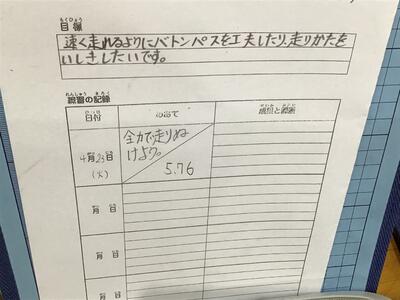 もくひょう
目標
速く走れるようにバトンパスを工夫したり、走りかたを
いしきしたいです。
れんしゅう きろく
練習の記録
日付
めあて
感想と課題
4月23日
(火)
全力で走りぬ
けよう。
5.76
月 日
月 日
月 日